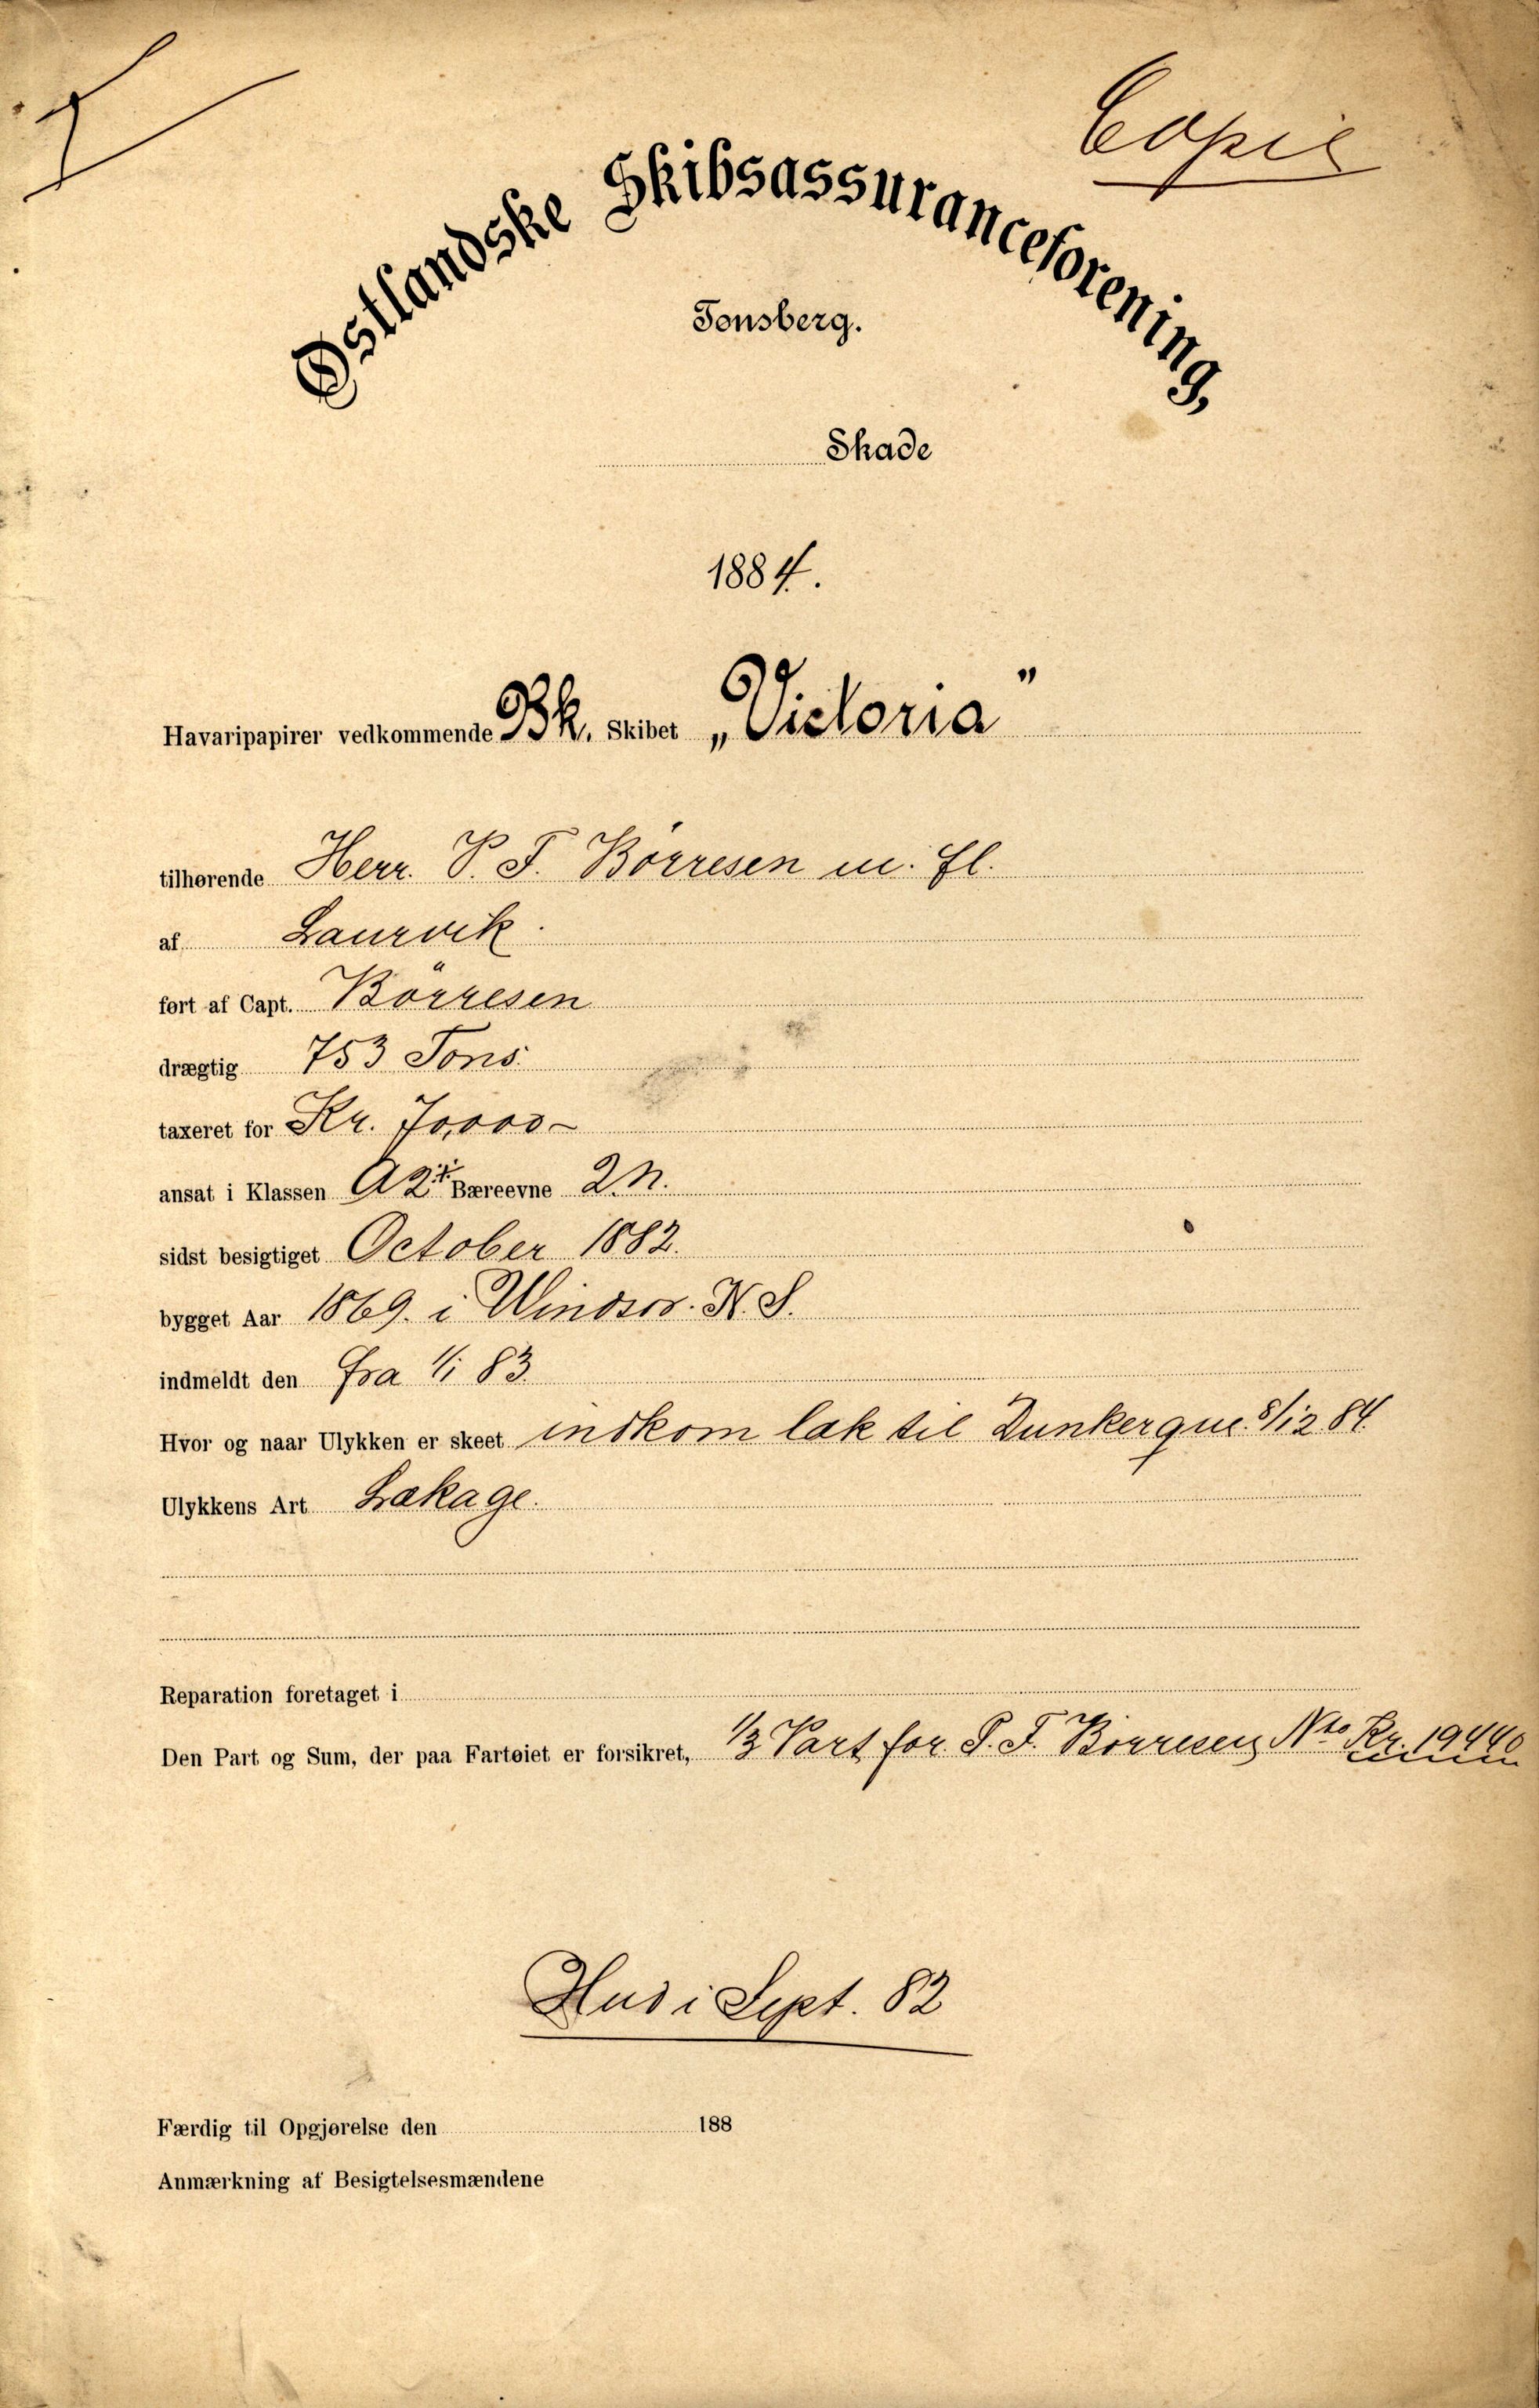 Copie
Østlandske Skibsassuranceforening,
Tønsberg.
Skade
1884.
Havaripapirer vedkommende Bk. Skibet „Victoria"
tilhørende Herr. P. F. Börresen m. fl.
af Laurvik.
ført af Capt. Börresen
drægtig 753 Tons.
taxeret for Kr. 70,000-
ansat i Klassen A2 Bæreevne 2 N.
sidst besigtiget October 1882.
bygget Aar 1869. i Windsor. N. S.
indmeldt den fra 1/1 83
Hvor og naar Ulykken er skeet indkom læk til Dunkerque 8/12 84.
Ulykkens Art Lækage.
Reparation foretaget i
Den Part og Sum, der paa Fartøiet er forsikret, 1/3 Part for P. F. Börresen Nto Kr. 19440
Hud i Sept. 82
Færdig til Opgjørelse den 188
Anmærkning af Besigtelsesmændene